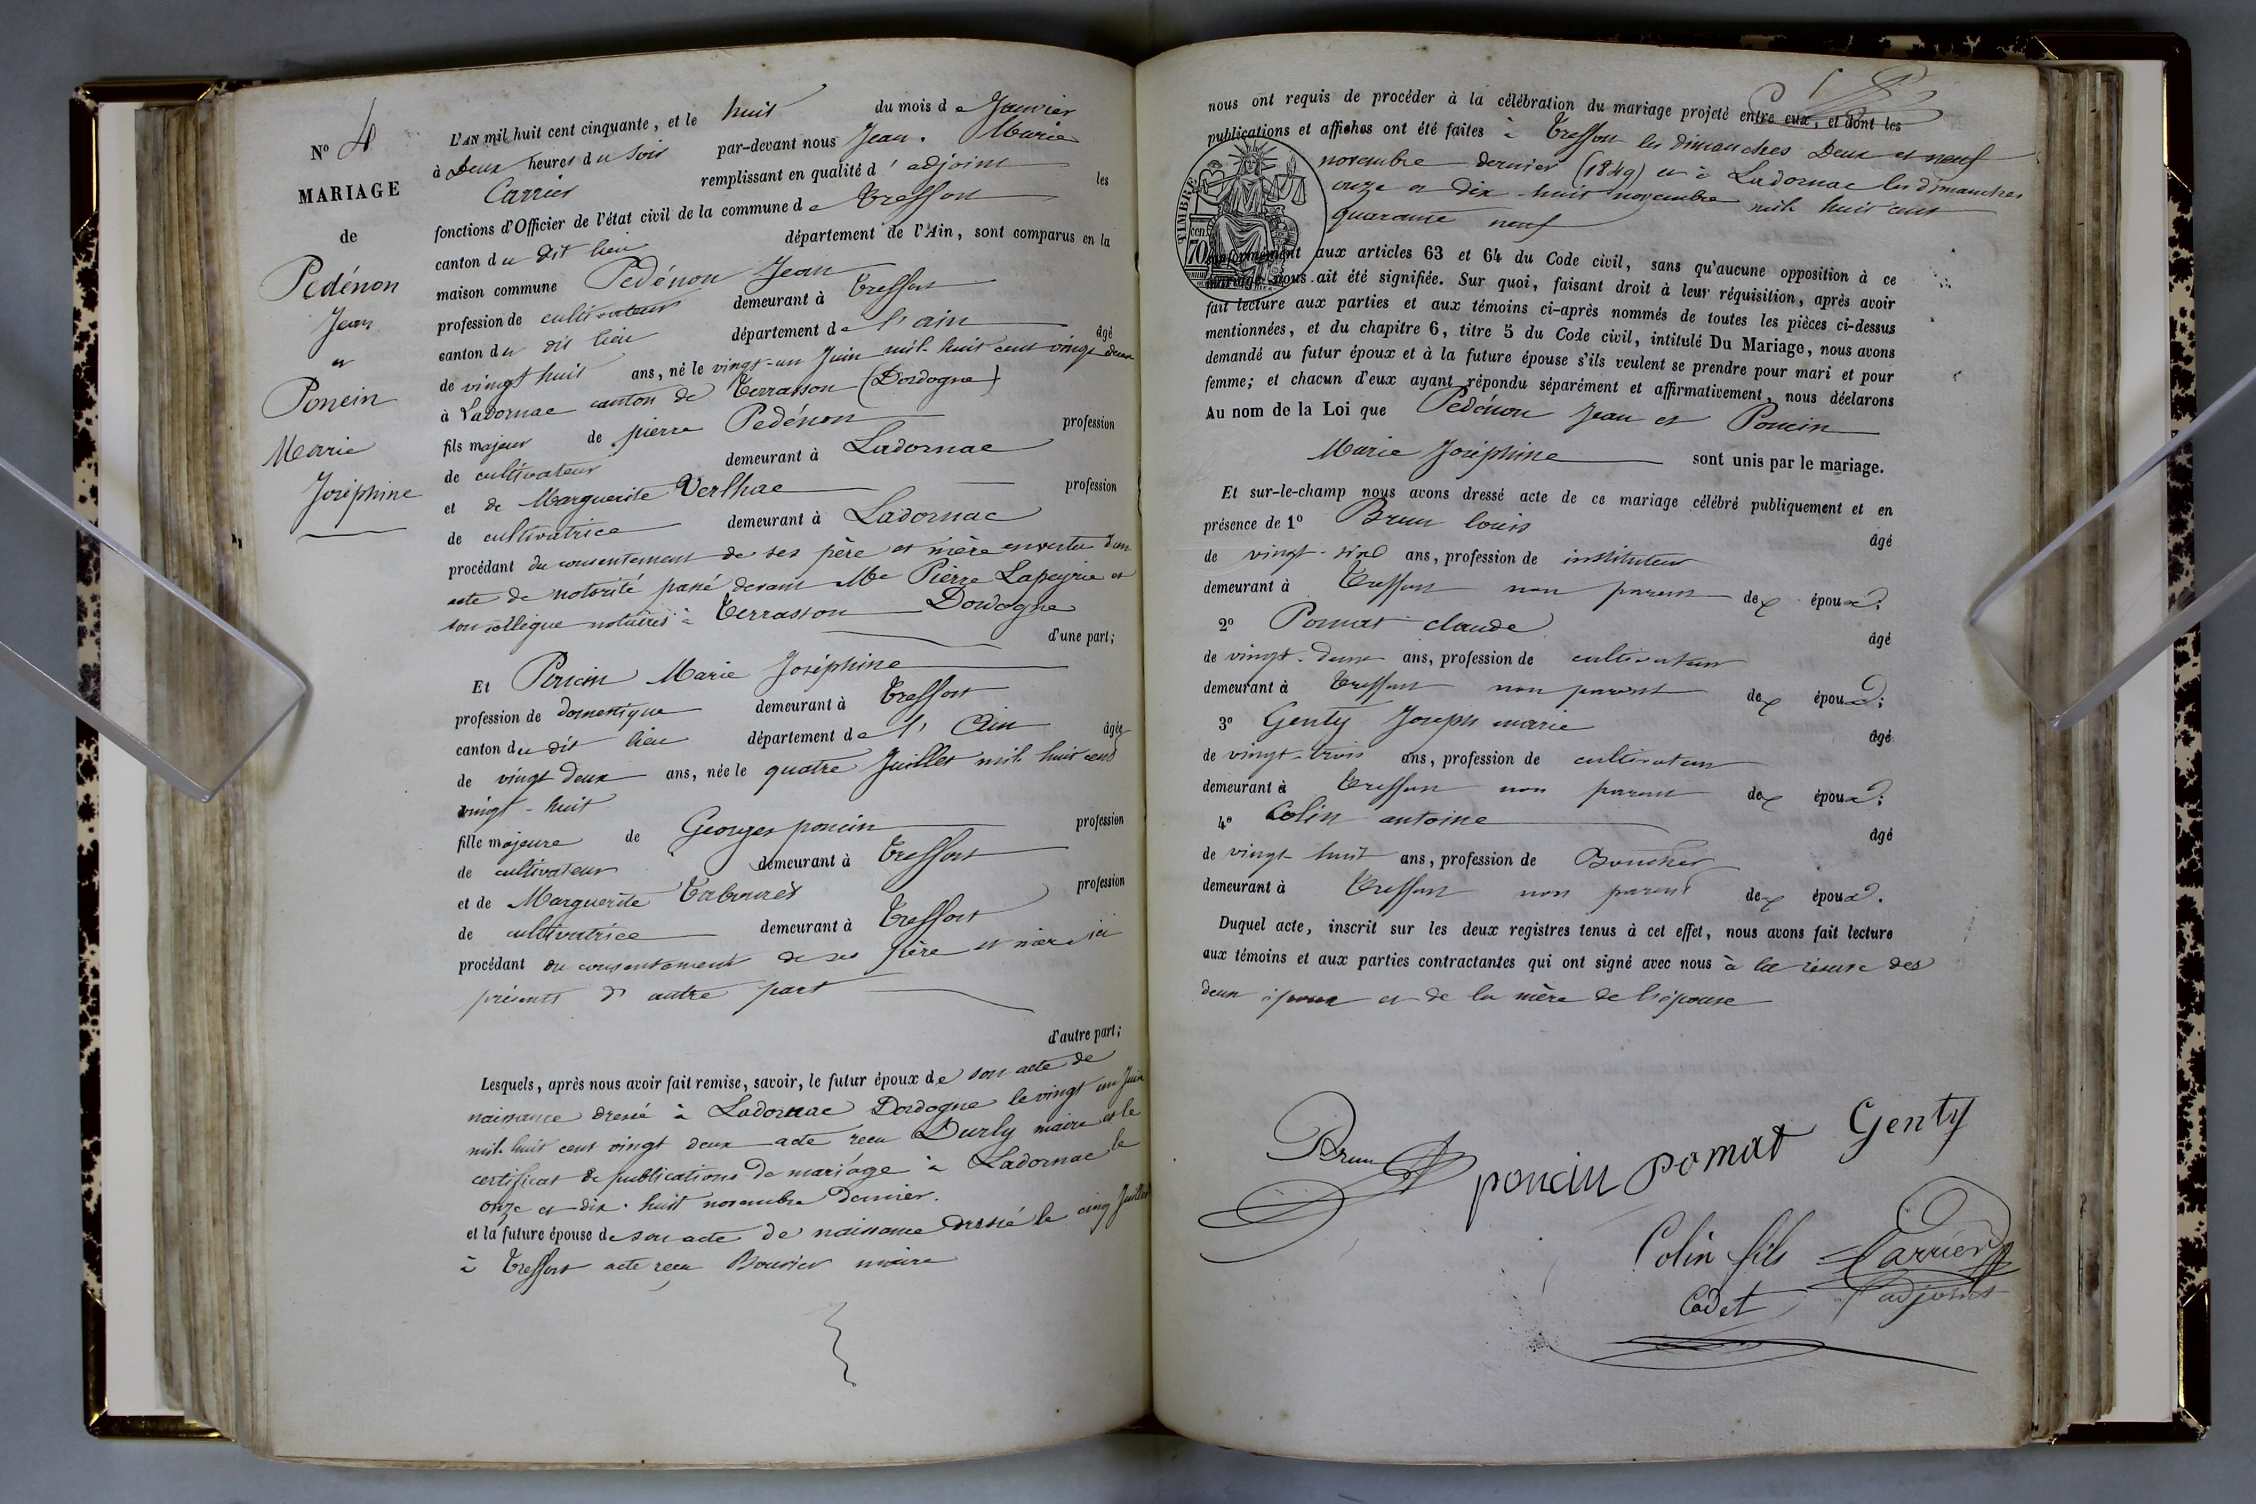 N° 4
MARIAGE
de
Pedénon
Jean
et
Poncin
Marie
Joséphine
L'AN mil huit cent cinquante, et le huit du mois de Janvier
à Deux heures du soir par-devant nous Jean. Marie
Carrier remplissant en qualité d'adjoint les
fonctions d'Officier de l'état civil de la commune de Treffort
canton du dit lieu département de l'Ain, sont comparus en la
maison commune Pedénon Jean
profession de cultivateur demeurant à Treffort
canton du dit lieu département de l'ain âgé
de vingt huit ans, né le vingt-un Juin mil huit cent vingt deux
à Ladornac canton de Terrasson (Dordogne)
fils majeur de pierre Pedénon profession
de cultivateur demeurant à Ladornac
et de Marguerite Verlhac profession
de cultivatrice demeurant à Ladornac
procédant du consentement de ses père et mère en vertu d'un
acte de notorité passé devant Me Pierre Lapeyrie et
son collègue notaires à Terrasson Dordogne
d'une part;
Et Poncin Marie Joséphine
profession de domestique demeurant à Treffort
canton du dit lieu département de l'Ain âgée
de vingt deux ans, née le quatre Juillet mil huit cent
vingt-huit
fille majeure de Georges poncin profession
de cultivateur demeurant à Treffort
et de Marguerite Tabouret profession
de cultivatrice demeurant à Treffort
procédant du consentement de ses père et mère ici
présents d'autre part
d'autre part;
Lesquels, après nous avoir fait remise, savoir, le futur époux de son acte de
naissance dressé à Ladornac Dordogne le vingt un Juin
mil huit cent vingt deux acte reçu Durly maire et le
certificat de publications de mariage à Ladornac le
onze et dix-huit novembre dernier.
et la future épouse de son acte de naissance dressé le cinq Juillet
à Treffort acte reçu Bouvier maire
nous ont requis de procéder à la célébration du mariage projeté entre eux, et dont les
publications et affiches ont été faites à Treffort les dimanches Deux et neuf
novembre dernier (1849) et à Ladornac les dimanches
onze et dix-huit novembre mil huit cent
quarante neuf
TIMBRE
70
conformément aux articles 63 et 64 du Code civil, sans qu'aucune opposition à ce
mariage nous ait été signifiée. Sur quoi, faisant droit à leur réquisition, après avoir
fait lecture aux parties et aux témoins ci-après nommés de toutes les pièces ci-dessus
mentionnées, et du chapitre 6, titre 5 du Code civil, intitulé Du Mariage, nous avons
demandé au futur époux et à la future épouse s'ils veulent se prendre pour mari et pour
femme; et chacun d'eux ayant répondu séparément et affirmativement, nous déclarons
Au nom de la Loi que Pedénon Jean et Poncin
Marie Joséphine sont unis par le mariage.
Et sur-le-champ nous avons dressé acte de ce mariage célébré publiquement et en
présence de 1° Brun louis âgé
de vingt-six ans, profession de instituteur
demeurant à Treffort non parent des époux;
2° Pomat claude âgé
de vingt-deux ans, profession de cultivateur
demeurant à Treffort non parent des époux;
3° Genty Joseph marie âgé
de vingt-trois ans, profession de cultivateur
demeurant à Treffort non parent des époux;
4° Colin antoine âgé
de vingt-huit ans, profession de Boucher
demeurant à Treffort non parent des époux.
Duquel acte, inscrit sur les deux registres tenus à cet effet, nous avons fait lecture
aux témoins et aux parties contractantes qui ont signé avec nous à la réserve des
deux époux et de la mère de l'épouse
Brun poncin pomat Genty
Colin fils Carrier
Cadet adjoint